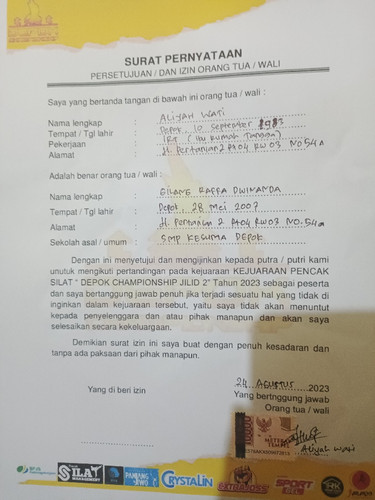 SURAT PERNYATAAN
PERSETUJUAN / DAN IZIN ORANG TUA / WALI
Saya yang bertanda tangan di bawah ini orang tua / wali :
Nama lengkap : ALIYAH WATI
Tempat / Tgl lahir : Depok, 10 September 1983
Pekerjaan : IRT (Ibu Rumah Tangga)
Alamat : Jl. Pertanian 2 Rt04 RW03 NO.54A
Adalah benar orang tua / wali :
Nama lengkap : GILANG RAFFA DWINANDA
Tempat / Tgl lahir : Depok, 28 Mei 2007
Alamat : Jl. Pertanian 2 Rt04 RW03 NO.54a
Sekolah asal / umum : SMP KESUMA DEPOK
Dengan ini menyetujui dan mengijinkan kepada putra / putri kami
unutuk mengikuti pertandingan pada kejuaraan KEJUARAAN PENCAK
SILAT " DEPOK CHAMPIONSHIP JILID 2" Tahun 2023 sebagai peserta
dan saya bertanggung jawab penuh jika terjadi sesuatu hal yang tidak di
inginkan dalam kejuaraan tersebut, yaitu saya tidak akan menuntut
kepada penyelenggara dan atau pihak manapun dan akan saya
selesaikan secara kekeluargaan.
Demikian surat izin ini saya buat dengan penuh kesadaran dan
tanpa ada paksaan dari pihak manapun.
24 AGUSTUS 2023
Yang di beri izin
Yang bertnggung jawab
Orang tua / wali
10000
METERAI
TEMPEL
Aliyah Wati
SILAT
MANAGEMENT
PANJANG
JIWO
CRYSTALIN
EXTRAJOSS
SPORT